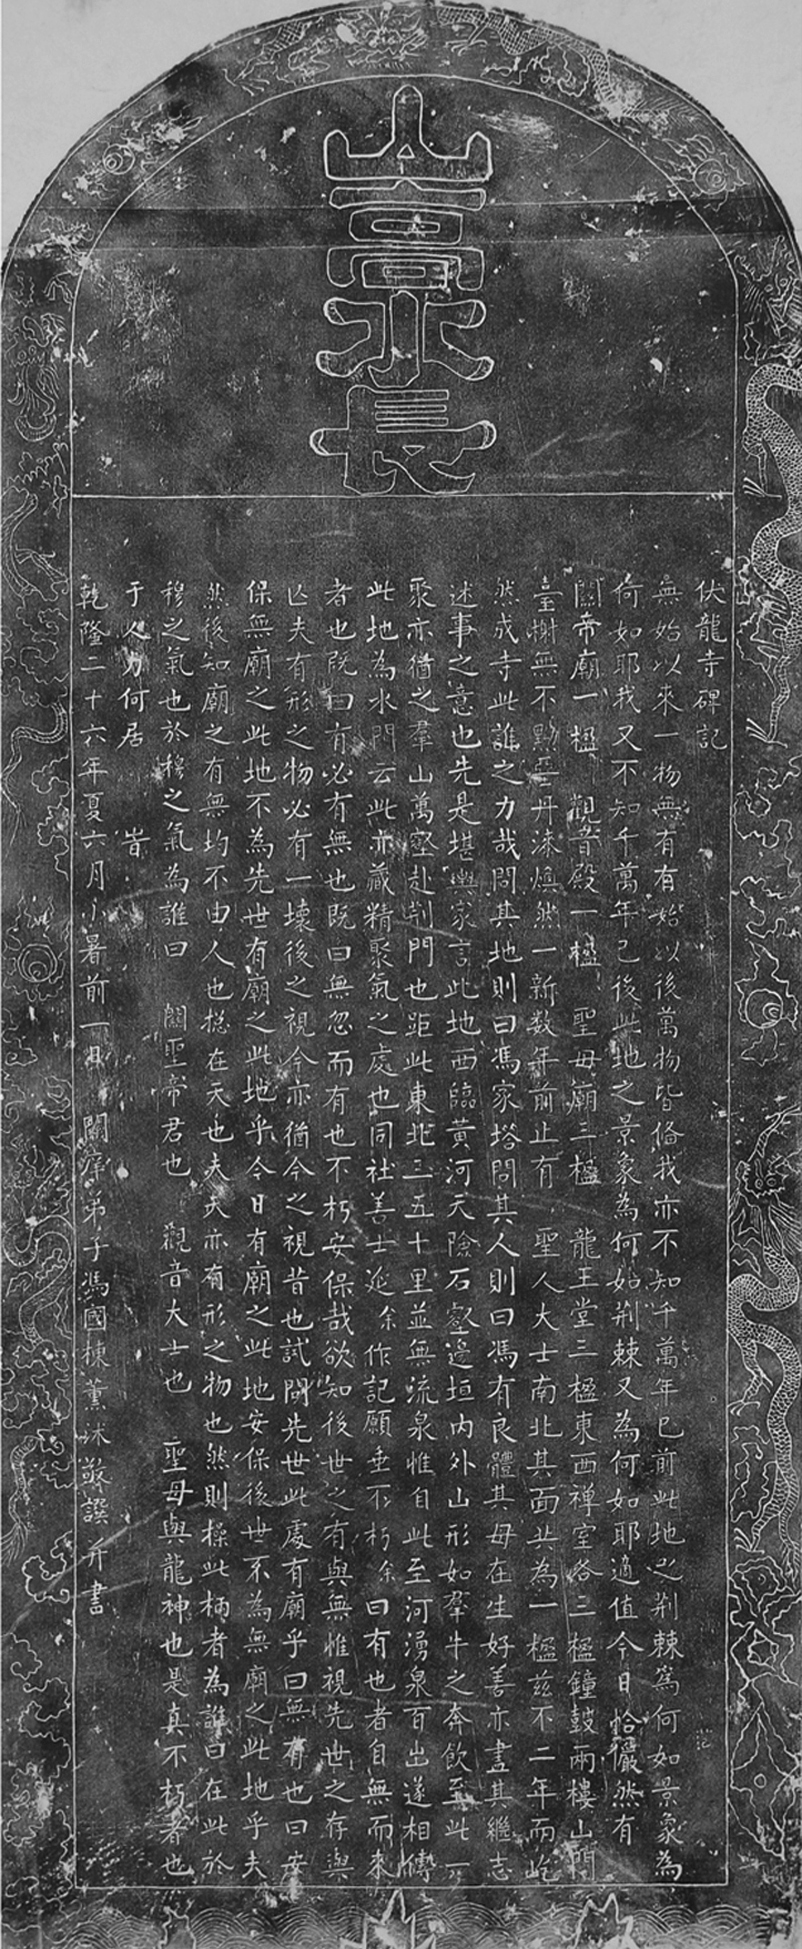 山高水長
伏龍寺碑記
無始以來一物無有有始以後萬物皆俻我亦不知千萬年已前此地之荆棘為何如景象為
何如耶我又不知千萬年已後此地之景象為何如荆棘又為何如耶適值今日恰儼然有
關帝廟一楹 觀音殿一楹 聖母廟三楹 龍王堂三楹東西禪室各三楹鐘鼓兩樓山門
臺榭無不黝堊丹漆煥然一新数年前止有 聖人大士南北其面共為一楹兹不二年而屹
然成寺此誰之力哉問其地則曰馮家塔問其人則曰馮有良體其母在生好善亦盡其繼志
述事之意也先是堪輿家言此地西臨黄河天險石壑邉垣内外山形如羣牛之奔飲至此一
聚亦猶之羣山萬壑赴荆門也距此東北三五十里並無流泉惟自此至河湧泉百出遂相傳
此地為水門云此亦藏精聚氣之處也同社善士延余作記願垂不朽余曰有也者自無而來
者也既曰有必有無也既曰無忽而有也不朽安保哉欲知後世之有與無惟視先世之存與
亾夫有形之物必有一壞後之視今亦猶今之視昔也試問先世此處有廟乎曰無有也曰安
保無廟之此地不為先世有廟之此地乎今日有廟之此地安保後世不為無廟之此地乎夫
然後知廟之有無均不由人也揔在天也夫天亦有形之物也然則操此柄者為誰曰在此於
穆之氣也於穆之氣為誰曰 關聖帝君也 觀音大士也 聖母與龍神也是真不朽者也
于人力何居 旹
乾隆二十六年夏六月小暑前一日 關深弟子馮國棟薰沐敬譔并書